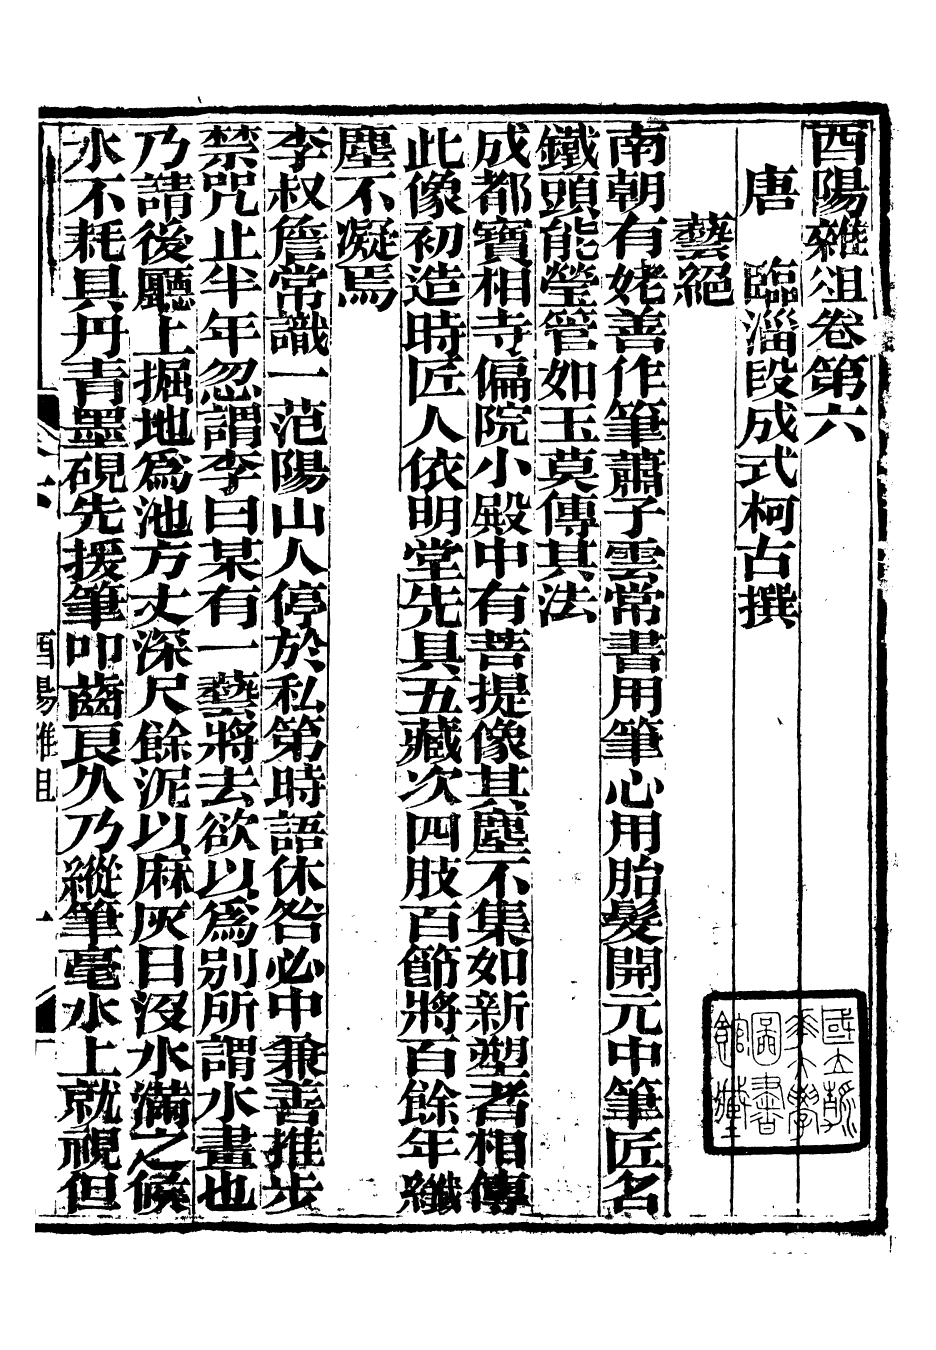 酉陽雜俎卷第六
唐　臨淄段成式柯古撰
藝絕
南朝有姥善作筆蕭子雲常書用筆心用胎髮開元中筆匠名
鐵頭能瑩管如玉莫傳其法
成都寶相寺偏院小殿中有菩提像其塵不集如新塑者相傳
此像初造時匠人依明堂先具五藏次四肢百節將百餘年纖
塵不凝焉
李叔詹常識一范陽山人停於私第時語休咎必中兼善推步
禁咒止半年忽謂李曰某有一藝將去欲以為別所謂水畫也
乃請後廳上掘地為池方丈深尺餘泥以麻灰日沒水滿之候
水不耗具丹青墨硯先援筆叩齒良久乃縱筆毫水上就視但
酉陽雜俎
卷六
一
國立清華大學圖書館藏